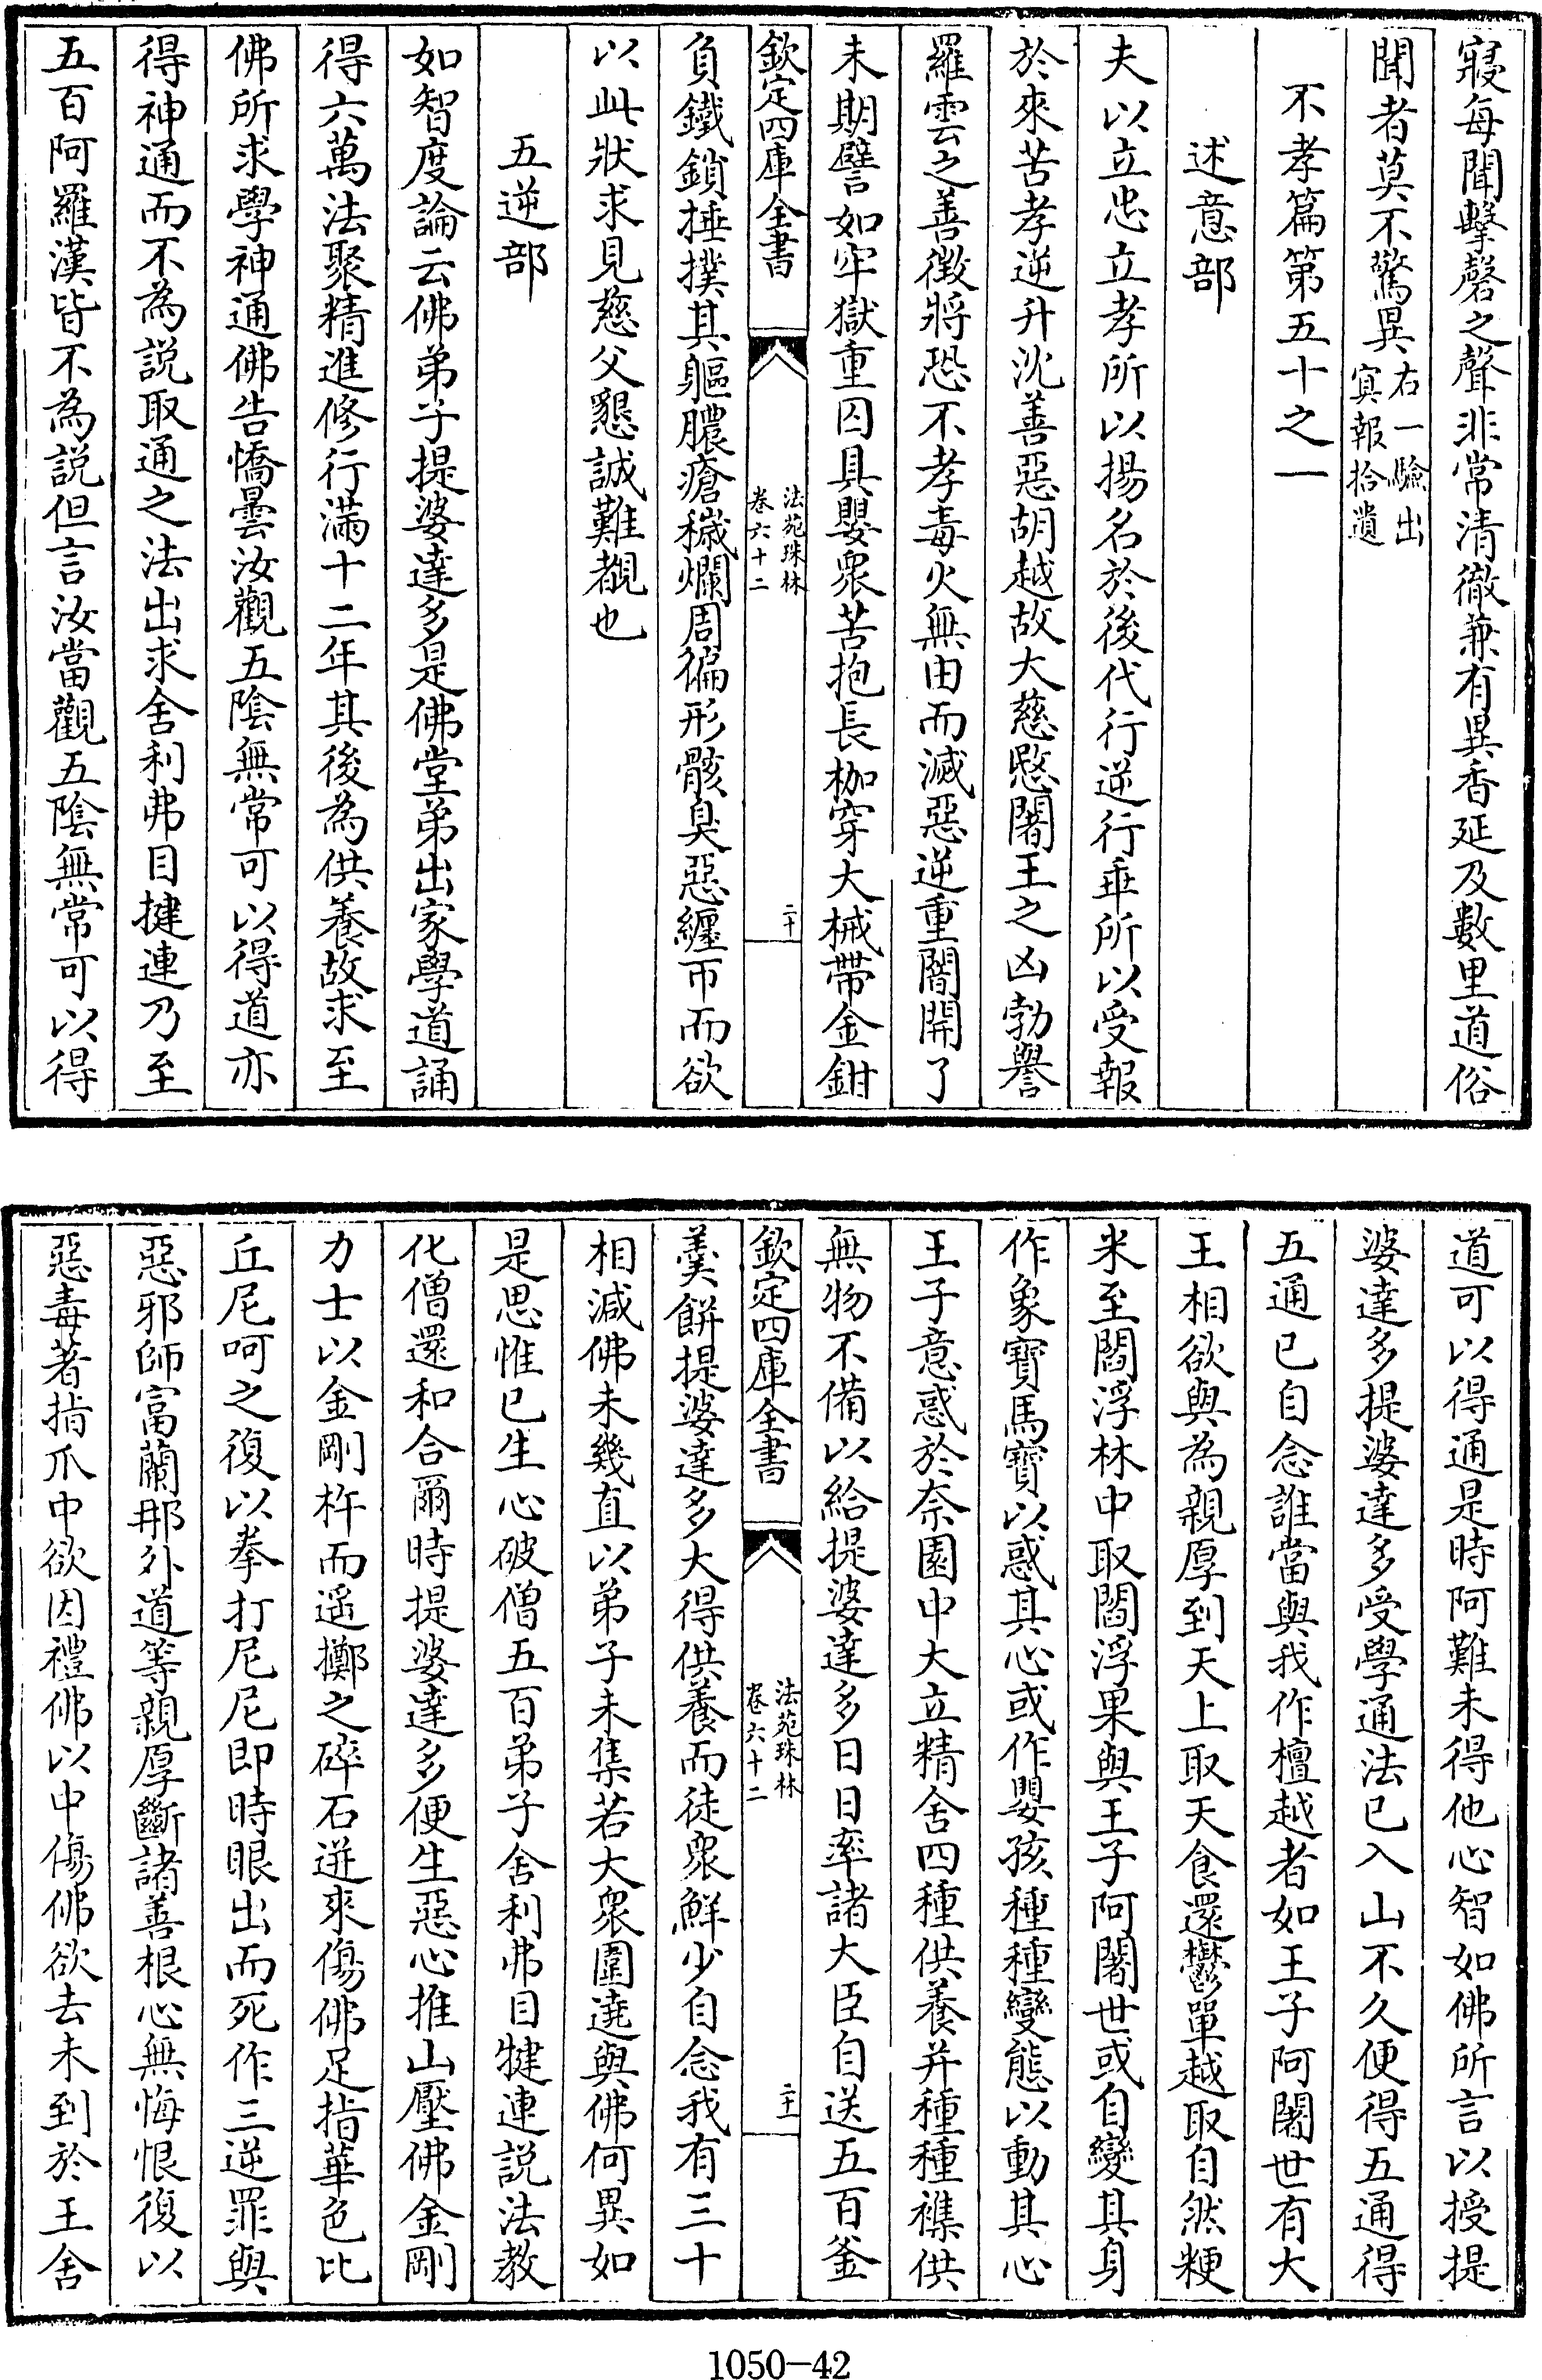 寢每聞擊磬之聲非常清徹兼有異香延及數里道俗
聞者莫不驚異右一驗出冥報拾遺
不孝篇第五十之一
述意部
夫以立忠立孝所以揚名於後代行逆行乖所以受報
於來苦孝逆升沈善惡胡越故大慈愍闍王之凶勃譽
羅雲之善徵將恐不孝毒火無由而滅惡逆重闇開了
未期譬如牢獄重囚具嬰衆苦抱長枷穿大械帶金鉗
欽定四庫全書
法苑珠林
卷六十二
二十
負鐵鎖捶撲其軀膿瘡穢爛周徧形骸臭惡纏帀而欲
以此狀求見慈父懇誠難覩也
五逆部
如智度論云佛弟子提婆達多是佛堂弟出家學道誦
得六萬法聚精進修行滿十二年其後為供養故求至
佛所求學神通佛告憍曇汝觀五陰無常可以得道亦
得神通而不為說取通之法出求舍利弗目揵連乃至
五百阿羅漢皆不為説但言汝當觀五陰無常可以得
道可以得通是時阿難未得他心智如佛所言以授提
婆達多提婆達多受學通法已入山不久便得五通得
五通已自念誰當與我作檀越者如王子阿闍世有大
王相欲與為親厚到天上取天食還鬱單越取自然粳
米至閻浮林中取閻浮果與王子阿闍世或自變其身
作象寶馬寶以惑其心或作嬰孩種種變態以動其心
王子意惑於奈園中大立精舍四種供養并種種襍供
無物不備以給提婆達多日日率諸大臣自送五百釜
欽定四庫全書
法苑珠林
卷六十二
二十一
羹餅提婆達多大得供養而徒衆鮮少自念我有三十
相減佛未幾直以弟子未集若大衆圍遶與佛何異如
是思惟已生心破僧五百弟子舍利弗目犍連説法教
化僧還和合爾時提婆達多便生惡心推山壓佛金剛
力士以金剛杵而遥擲之碎石迸來傷佛足指華色比
丘尼呵之復以拳打尼尼即時眼出而死作三逆罪與
惡邪師富蘭那外道等親厚斷諸善根心無悔恨復以
惡毒著指爪中欲因禮佛以中傷佛欲去未到於王舍
1050-42